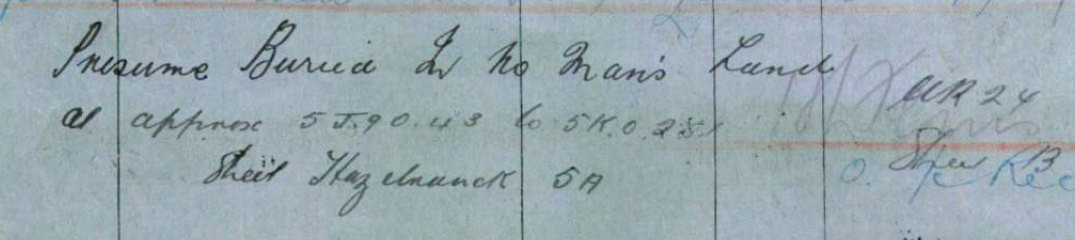 Presume Buried In No Man's Land
at approx 5J.90.43 to 5K.0.25
Sheet Hazebrouck 5A
AR 24
Sheet B
O. Rec